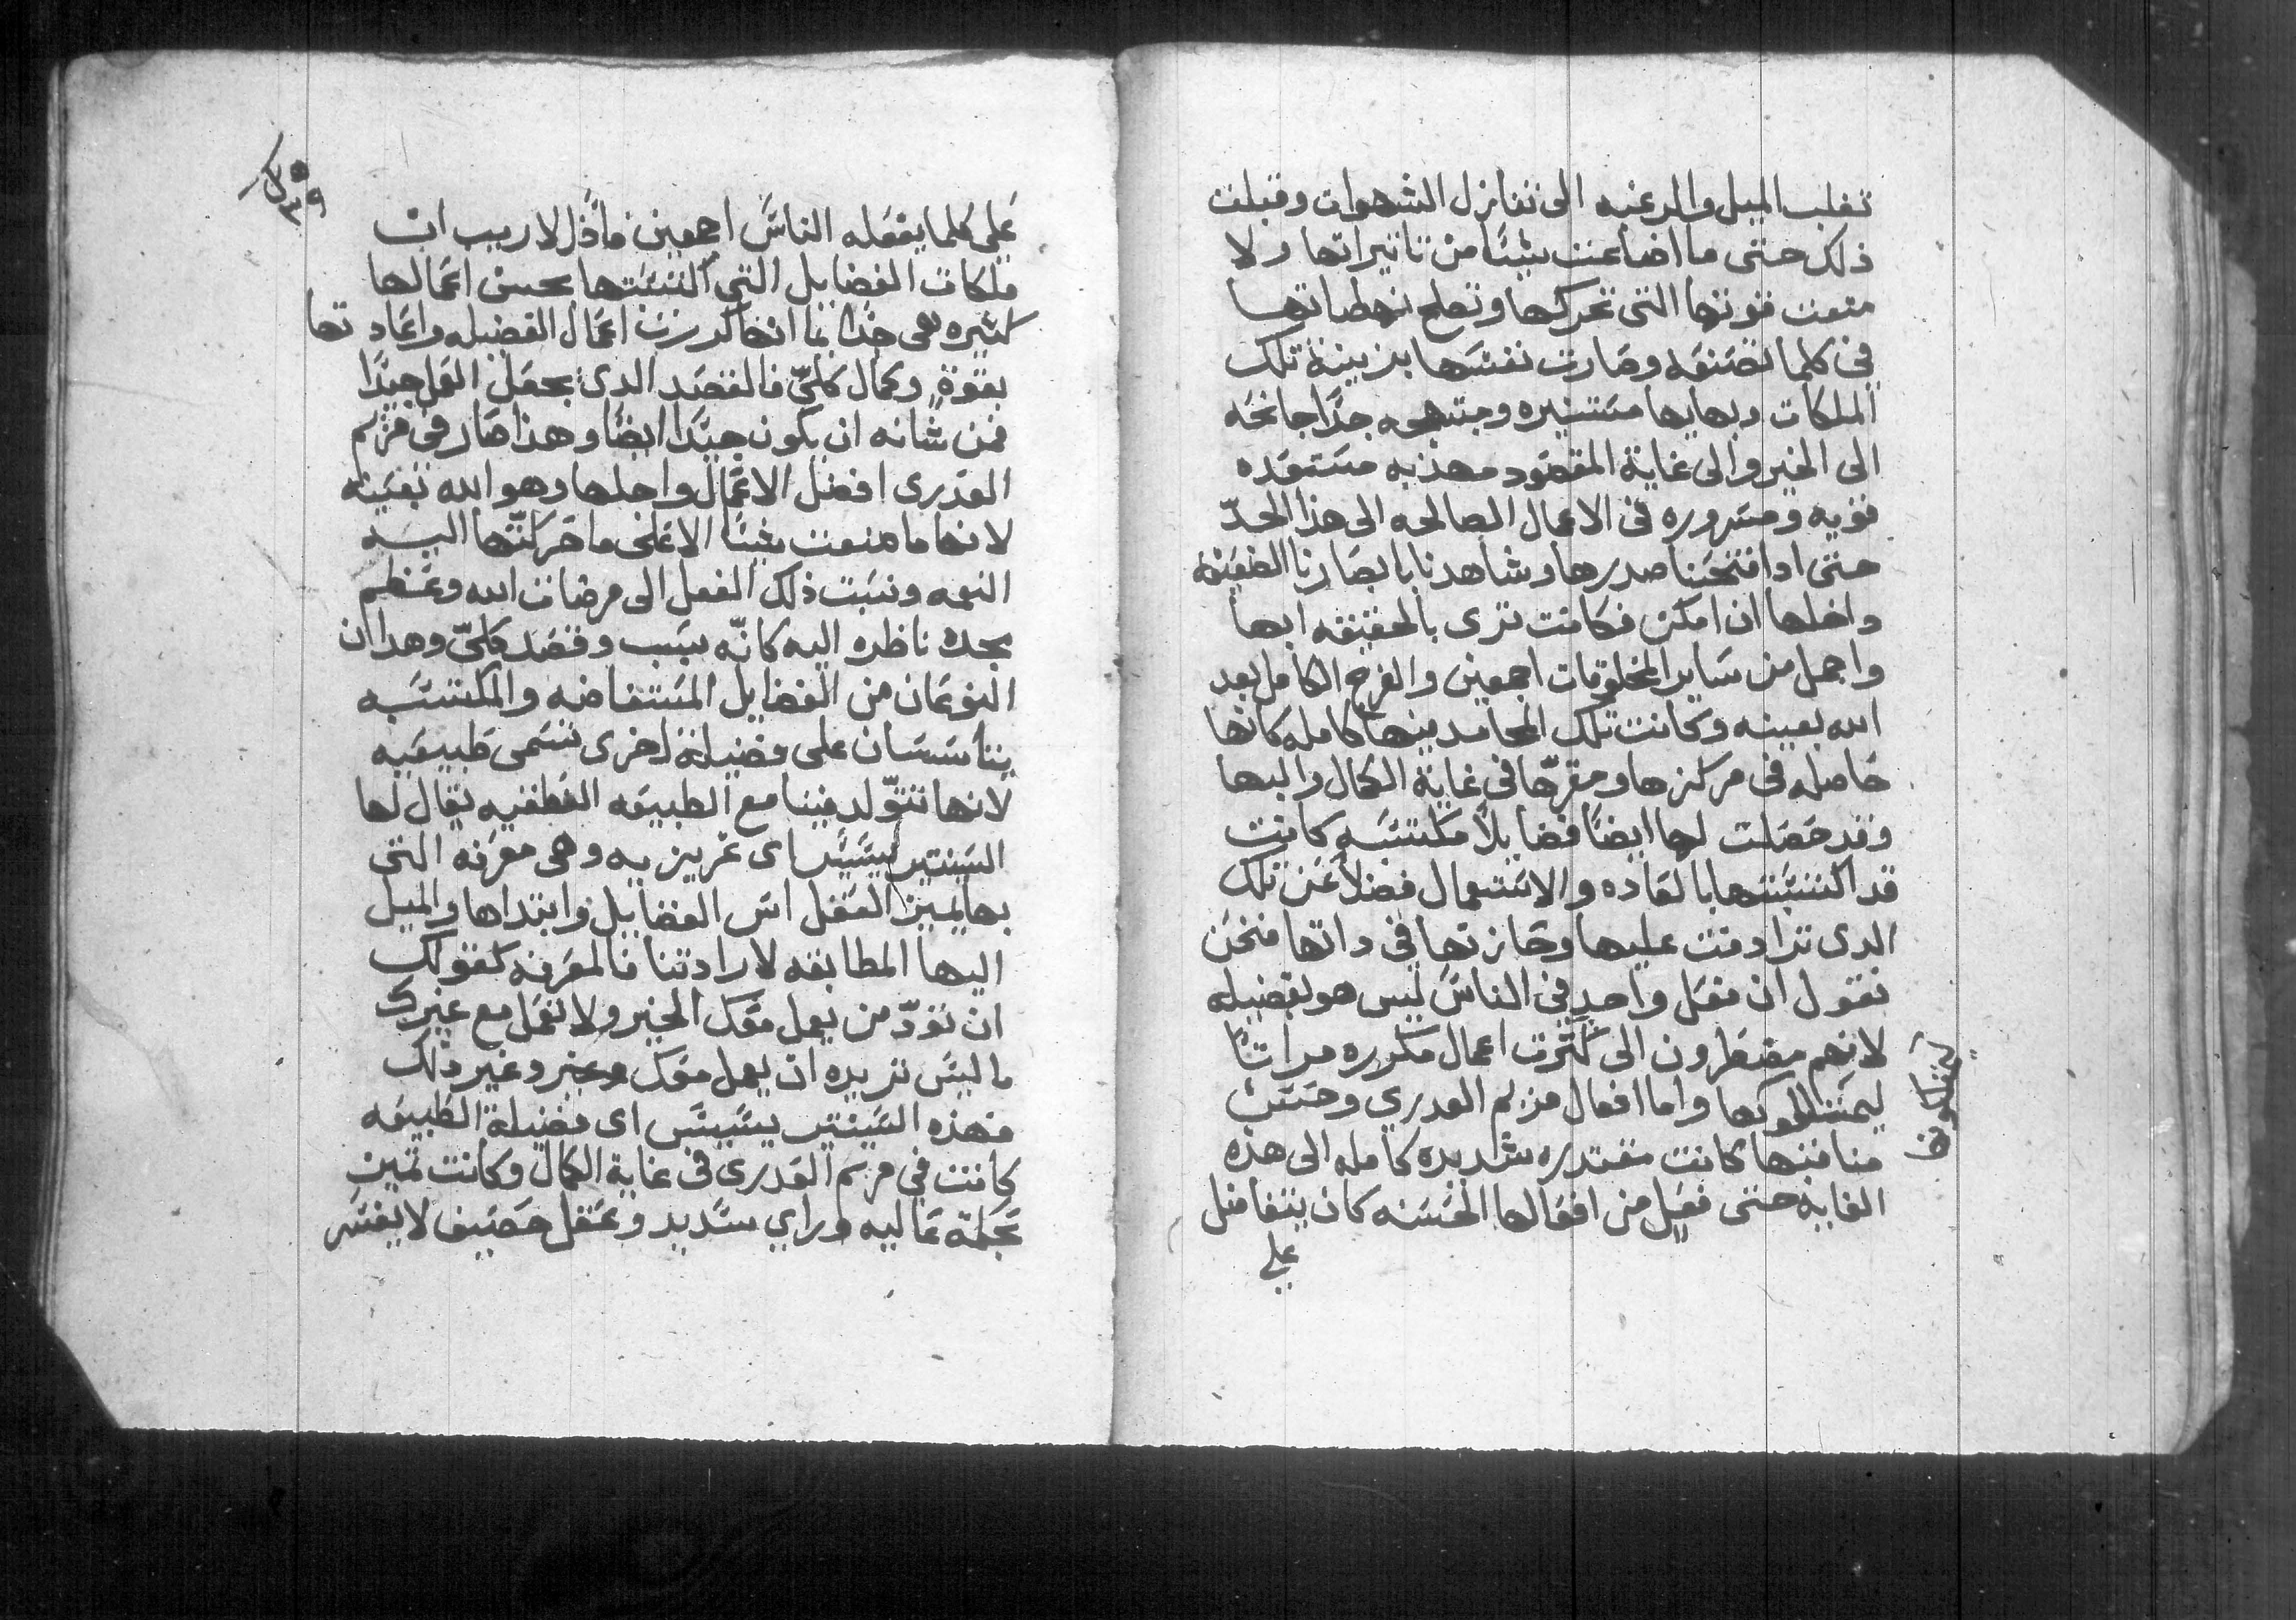 تغلب الميل والرغبه الى تنازل الشهوات وقبلت
ذلك حتى ما اضاعت شيئًا من تاثيراتها ولا
منعت قوتها التى تحركها وتصلح نهضاتها
فى كلما تصنعه وصارت نفسها بزينة تلك
الملكات وبهايها مستنيره ومبتهجه جدًا جانحه
الى الخير والى غاية المقصود مهذبه مستعده
قويه ومسروره فى الاعمال الصالحه الى هذا الحدّ
حتى ادا فتحنا صدرها وشاهدنا بابصارنا الضعيفه
داخلها ان امكن فكانت ترى بالحقيقه ابها
واجمل من ساير المخلوقات اجمعين والفرح الكامل بعد
الله بعينه وكانت تلك المحامد فيها كامله كانها
حاصله فى مركزها ومقرّها فى غاية الكمال والبها
وقد حصلت لها ايضًا فضايلاً مكتسبه كانت
قد اكتسبتها بالعاده والاستعمال فضلاً عن تلك
الدى ترادفت عليها وحازتها فى داتها فنحن
نقول ان فعل واحد فى الناس ليس هو بفضيله
لانهم مضطرون الى كثرت اعمال مكرره مراتًا
ليمتلكوها واما افعال مريم العدري وحسن
مناقبها كانت مقتدره شديده كامله الى هذه
الغايه حتى فعل من افعالها الحسنه كان يتفاضل
على
على كلما يفعله الناس اجمعين فاذًا لا ريب ان
ملكات الفضايل التى اكتسبتها بحسن اعمالها
كثيره هى جدًا بما انها كررت اعمال الفضيله واعادتها
بقوة وكمال كليّ فالقصد الدى يجعل العمل جيدًا
فمن شانه ان يكون جيدًا ايضًا وهذا صار فى مريم
العدرى افضل الاعمال واجلها وهو الله بعينه
لانها ما صنعت شيئًا الا على ما حركتها اليه
النعمه ونسبت ذلك الفعل الى مرضات الله وعظم
مجده ناظره اليه كانّه سبب وقصد كليّ وهدان
النوعان من الفضايل المستفاضه والمكتسبه
يتاسسان على فضيلة اخرى تسمى طبيعيه
لانها تتوّلد فينا مع الطبيعه النطقيه يقال لها
السينتيريسيس اى غريزيه وهى معرفه التى
بها يميز العقل اس الفضايل وابتداها والميل
اليها المطابقه لارادتنا فالمعرفه كقولك
ان تودّ من يعمل معك الخير ولا تعمل مع غيرك
ما ليس تريده ان يعمل معك وغير ذلك
فهذه السينتيريسيس اى فضيلة الطبيعه
كانت في مريم العدرى فى غاية الكمال وكانت تميز
بحكمة عاليه وراي سديد وعقل حصيف لا يفتر